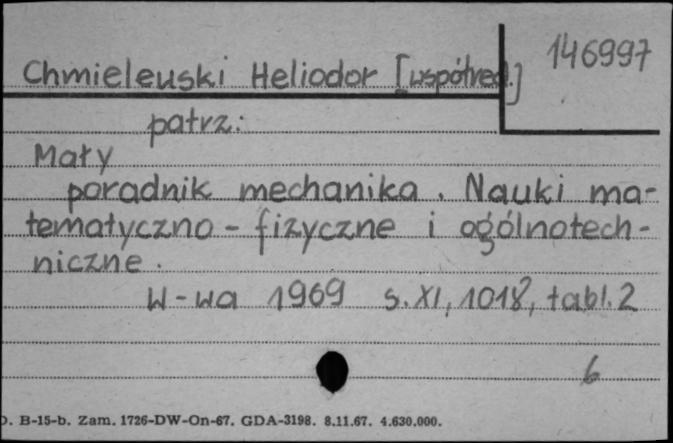 146997
Chmieleuski Heliodor [współred.]
patrz:
Mały
poradnik mechanika. Nauki ma-
tematyczno-fizyczne i ogólnotech-
niczne.
W-wa 1969 s.XI, 1018, tabl.2
6
D. B-15-b. Zam. 1726-DW-On-67. GDA-3198. 8.11.67. 4.630.000.